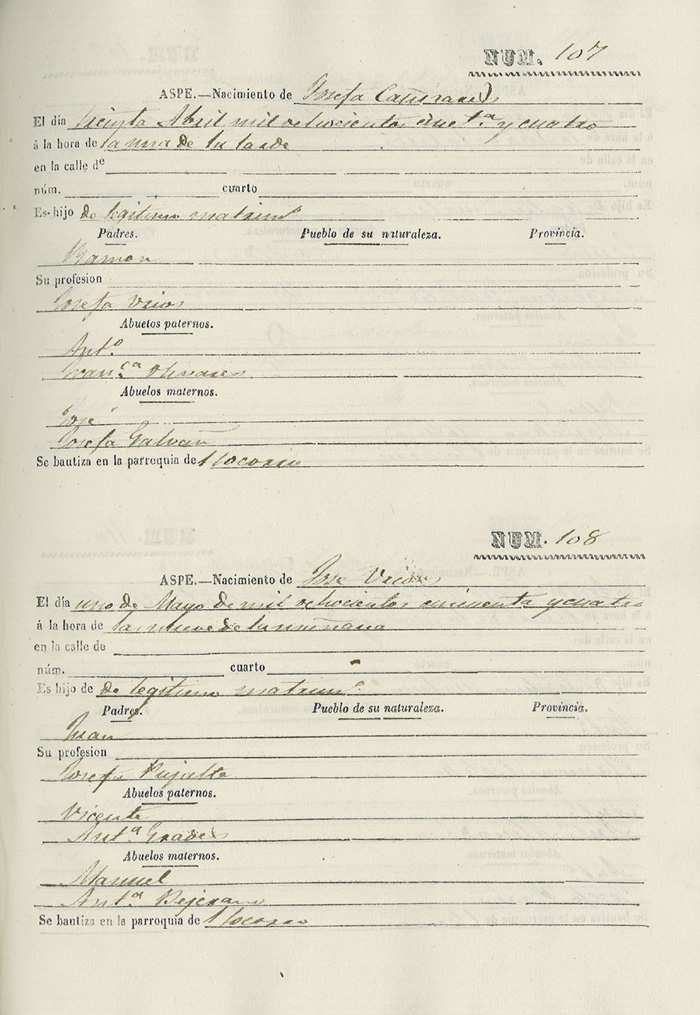 NUM. 107
ASPE.—Nacimiento de Josefa Cañizares
El dia treinta Abril mil ochocientos cinc.ta y cuatro
á la hora de la una de la tarde
en la calle de
núm. cuarto
Es hijo de legitimo matrim.o
Padres. Pueblo de su naturaleza. Provincia.
Ramon
Su profesion
Josefa
Abuelos paternos.
Ant.o
Fran.ca Olivares
Abuelos maternos.
José
Josefa Galvañ
Se bautiza en la parroquia de l Socorro
NUM. 108
ASPE.—Nacimiento de Jose
El dia uno de Mayo de mil ochocientos cincuenta y cuatro
á la hora de la nueve de la mañana
en la calle de
núm. cuarto
Es hijo de de legitimo matrim.o
Padres. Pueblo de su naturaleza. Provincia.
Juan
Su profesion
Josefa Pujalte
Abuelos paternos.
Vicente
Ant.a
Abuelos maternos.
Manuel
Ant.a Bejerano
Se bautiza en la parroquia de l Socorro